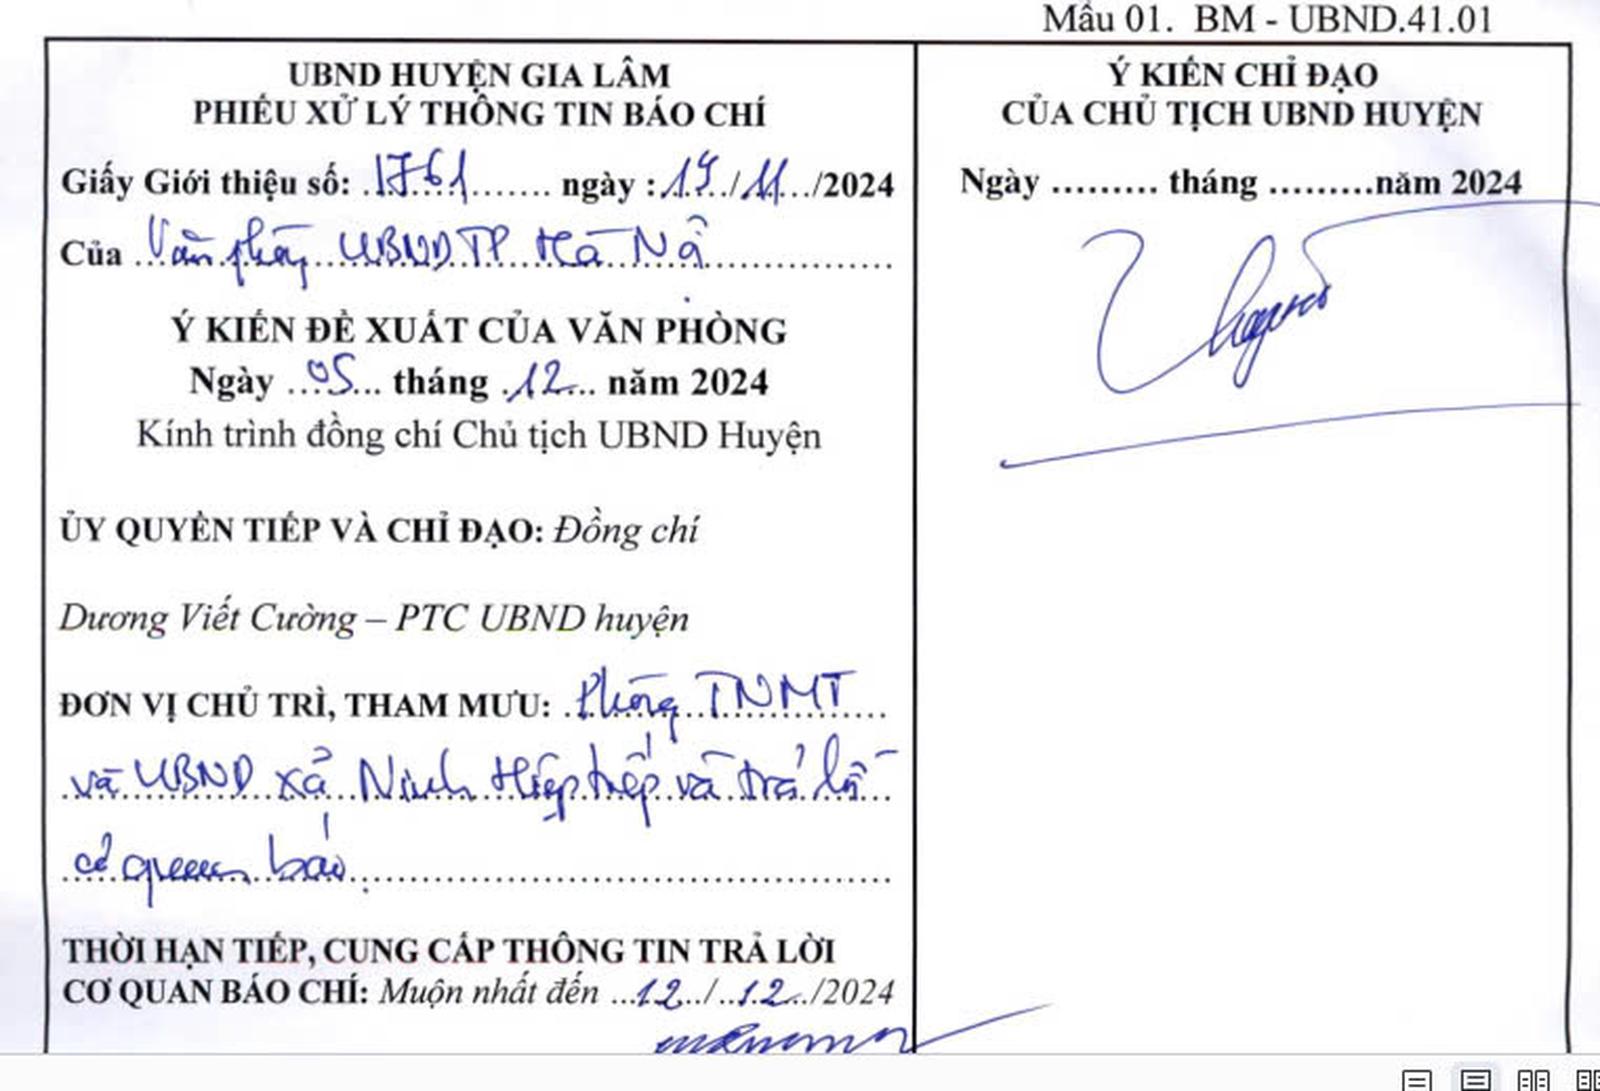 Mẫu 01. BM - UBND.41.01
UBND HUYỆN GIA LÂM
PHIẾU XỬ LÝ THÔNG TIN BÁO CHÍ
Giấy Giới thiệu số: 1761 ngày : 19/11/2024
Của Văn phòng UBND TP Hà Nội
Ý KIẾN ĐỀ XUẤT CỦA VĂN PHÒNG
Ngày 05 tháng 12 năm 2024
Kính trình đồng chí Chủ tịch UBND Huyện
ỦY QUYỀN TIẾP VÀ CHỈ ĐẠO: Đồng chí
Dương Viết Cường – PTC UBND huyện
ĐƠN VỊ CHỦ TRÌ, THAM MƯU: Phòng TNMT
và UBND xã Ninh Hiệp tiếp và trả lời
cơ quan báo
THỜI HẠN TIẾP, CUNG CẤP THÔNG TIN TRẢ LỜI
CƠ QUAN BÁO CHÍ: Muộn nhất đến 12/12/2024
Ý KIẾN CHỈ ĐẠO
CỦA CHỦ TỊCH UBND HUYỆN
Ngày ......... tháng .........năm 2024